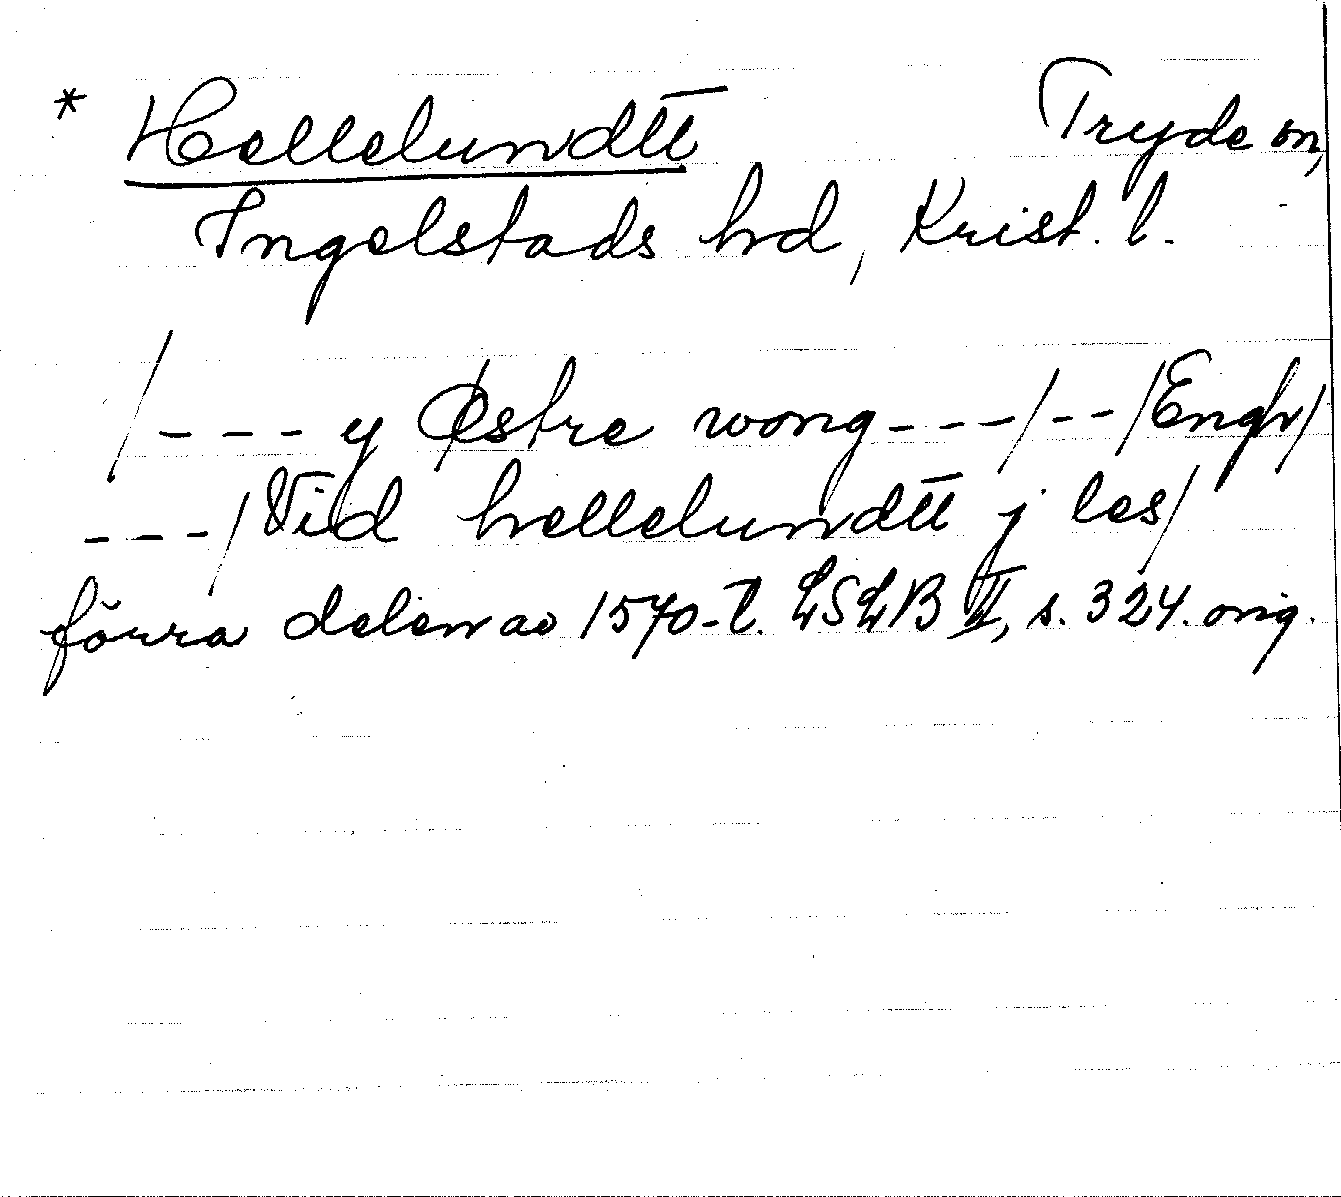 * Hellelundtt Tryde sn,
Ingelstads hd, Krist. l.
/---y Østre wong---/--/Engh/
---/Vid hellelundtt j les/
förra delen av 1570-t. LSLB II, s. 324. orig.